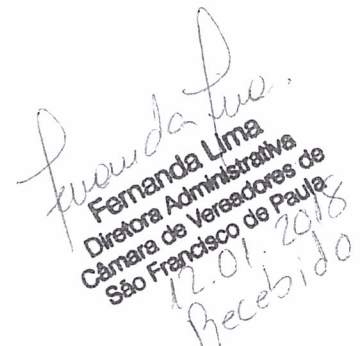 Fernanda Lima.
Fernanda Lima
Diretora Administrativa
Câmara de Vereadores de
São Francisco de Paula
12.01.2018
Recebido